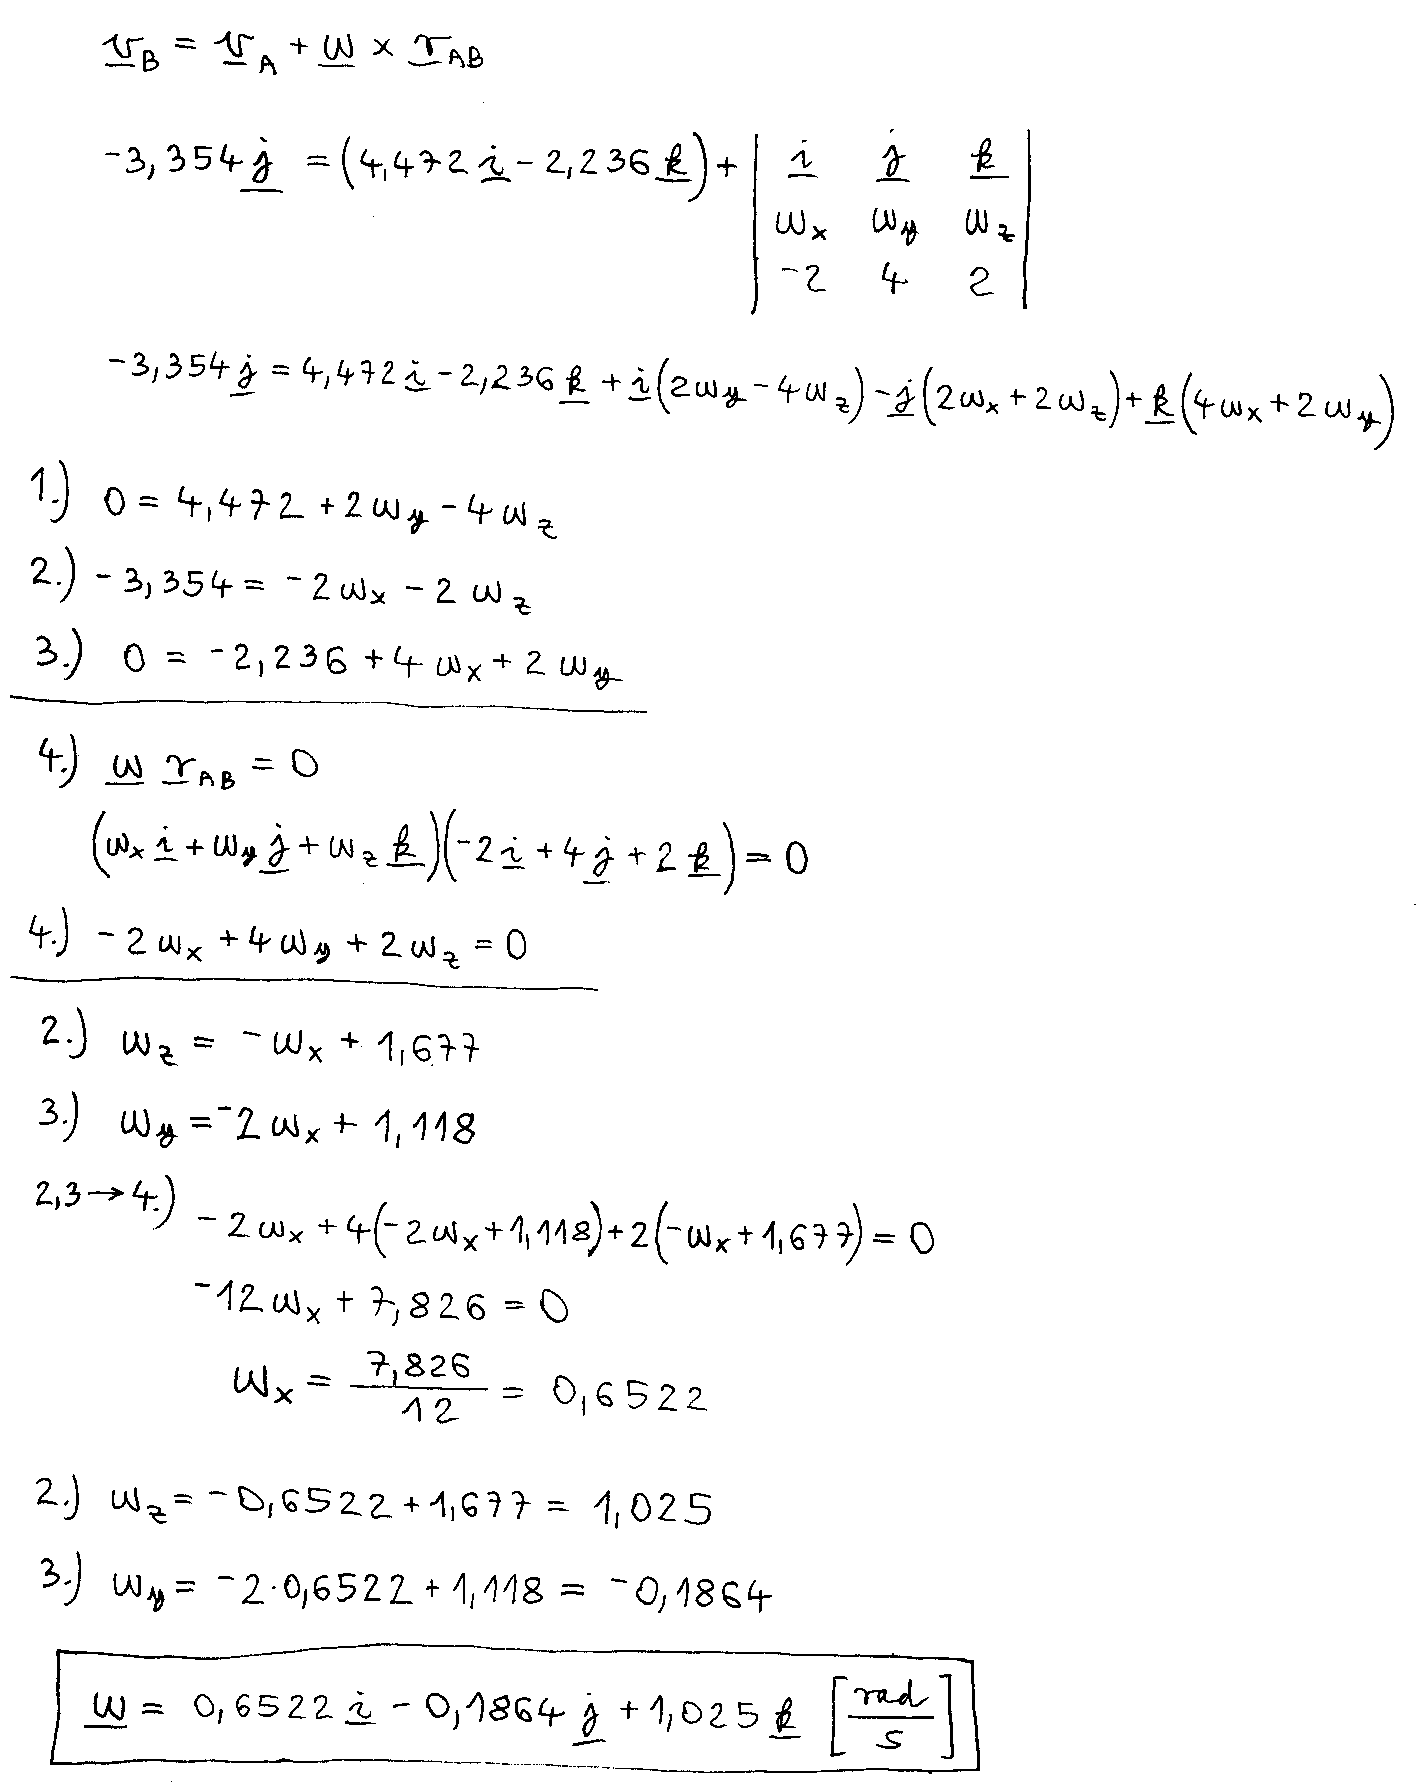 v_B = v_A + ω × r_AB
-3,354 j = (4,472 i - 2,236 k) + | i j k |
| ω_x ω_y ω_z |
| -2 4 2 |
-3,354 j = 4,472 i - 2,236 k + i(2ω_y - 4ω_z) - j(2ω_x + 2ω_z) + k(4ω_x + 2ω_y)
1.) 0 = 4,472 + 2ω_y - 4ω_z
2.) -3,354 = -2ω_x - 2ω_z
3.) 0 = -2,236 + 4ω_x + 2ω_y
4.) ω r_AB = 0
(ω_x i + ω_y j + ω_z k)(-2 i + 4 j + 2 k) = 0
4.) -2ω_x + 4ω_y + 2ω_z = 0
2.) ω_z = -ω_x + 1,677
3.) ω_y = -2ω_x + 1,118
2,3→4.) -2ω_x + 4(-2ω_x + 1,118) + 2(-ω_x + 1,677) = 0
-12ω_x + 7,826 = 0
ω_x = 7,826 / 12 = 0,6522
2.) ω_z = -0,6522 + 1,677 = 1,025
3.) ω_y = -2·0,6522 + 1,118 = -0,1864
ω = 0,6522 i - 0,1864 j + 1,025 k [rad/s]